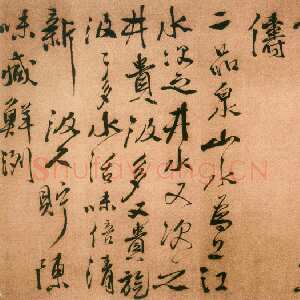 儔
二品泉山水為上江
水次之井水又次之
井貴汲多又貴旋
汲〻多水活味倍清
新汲久貯陳
味減鮮冽